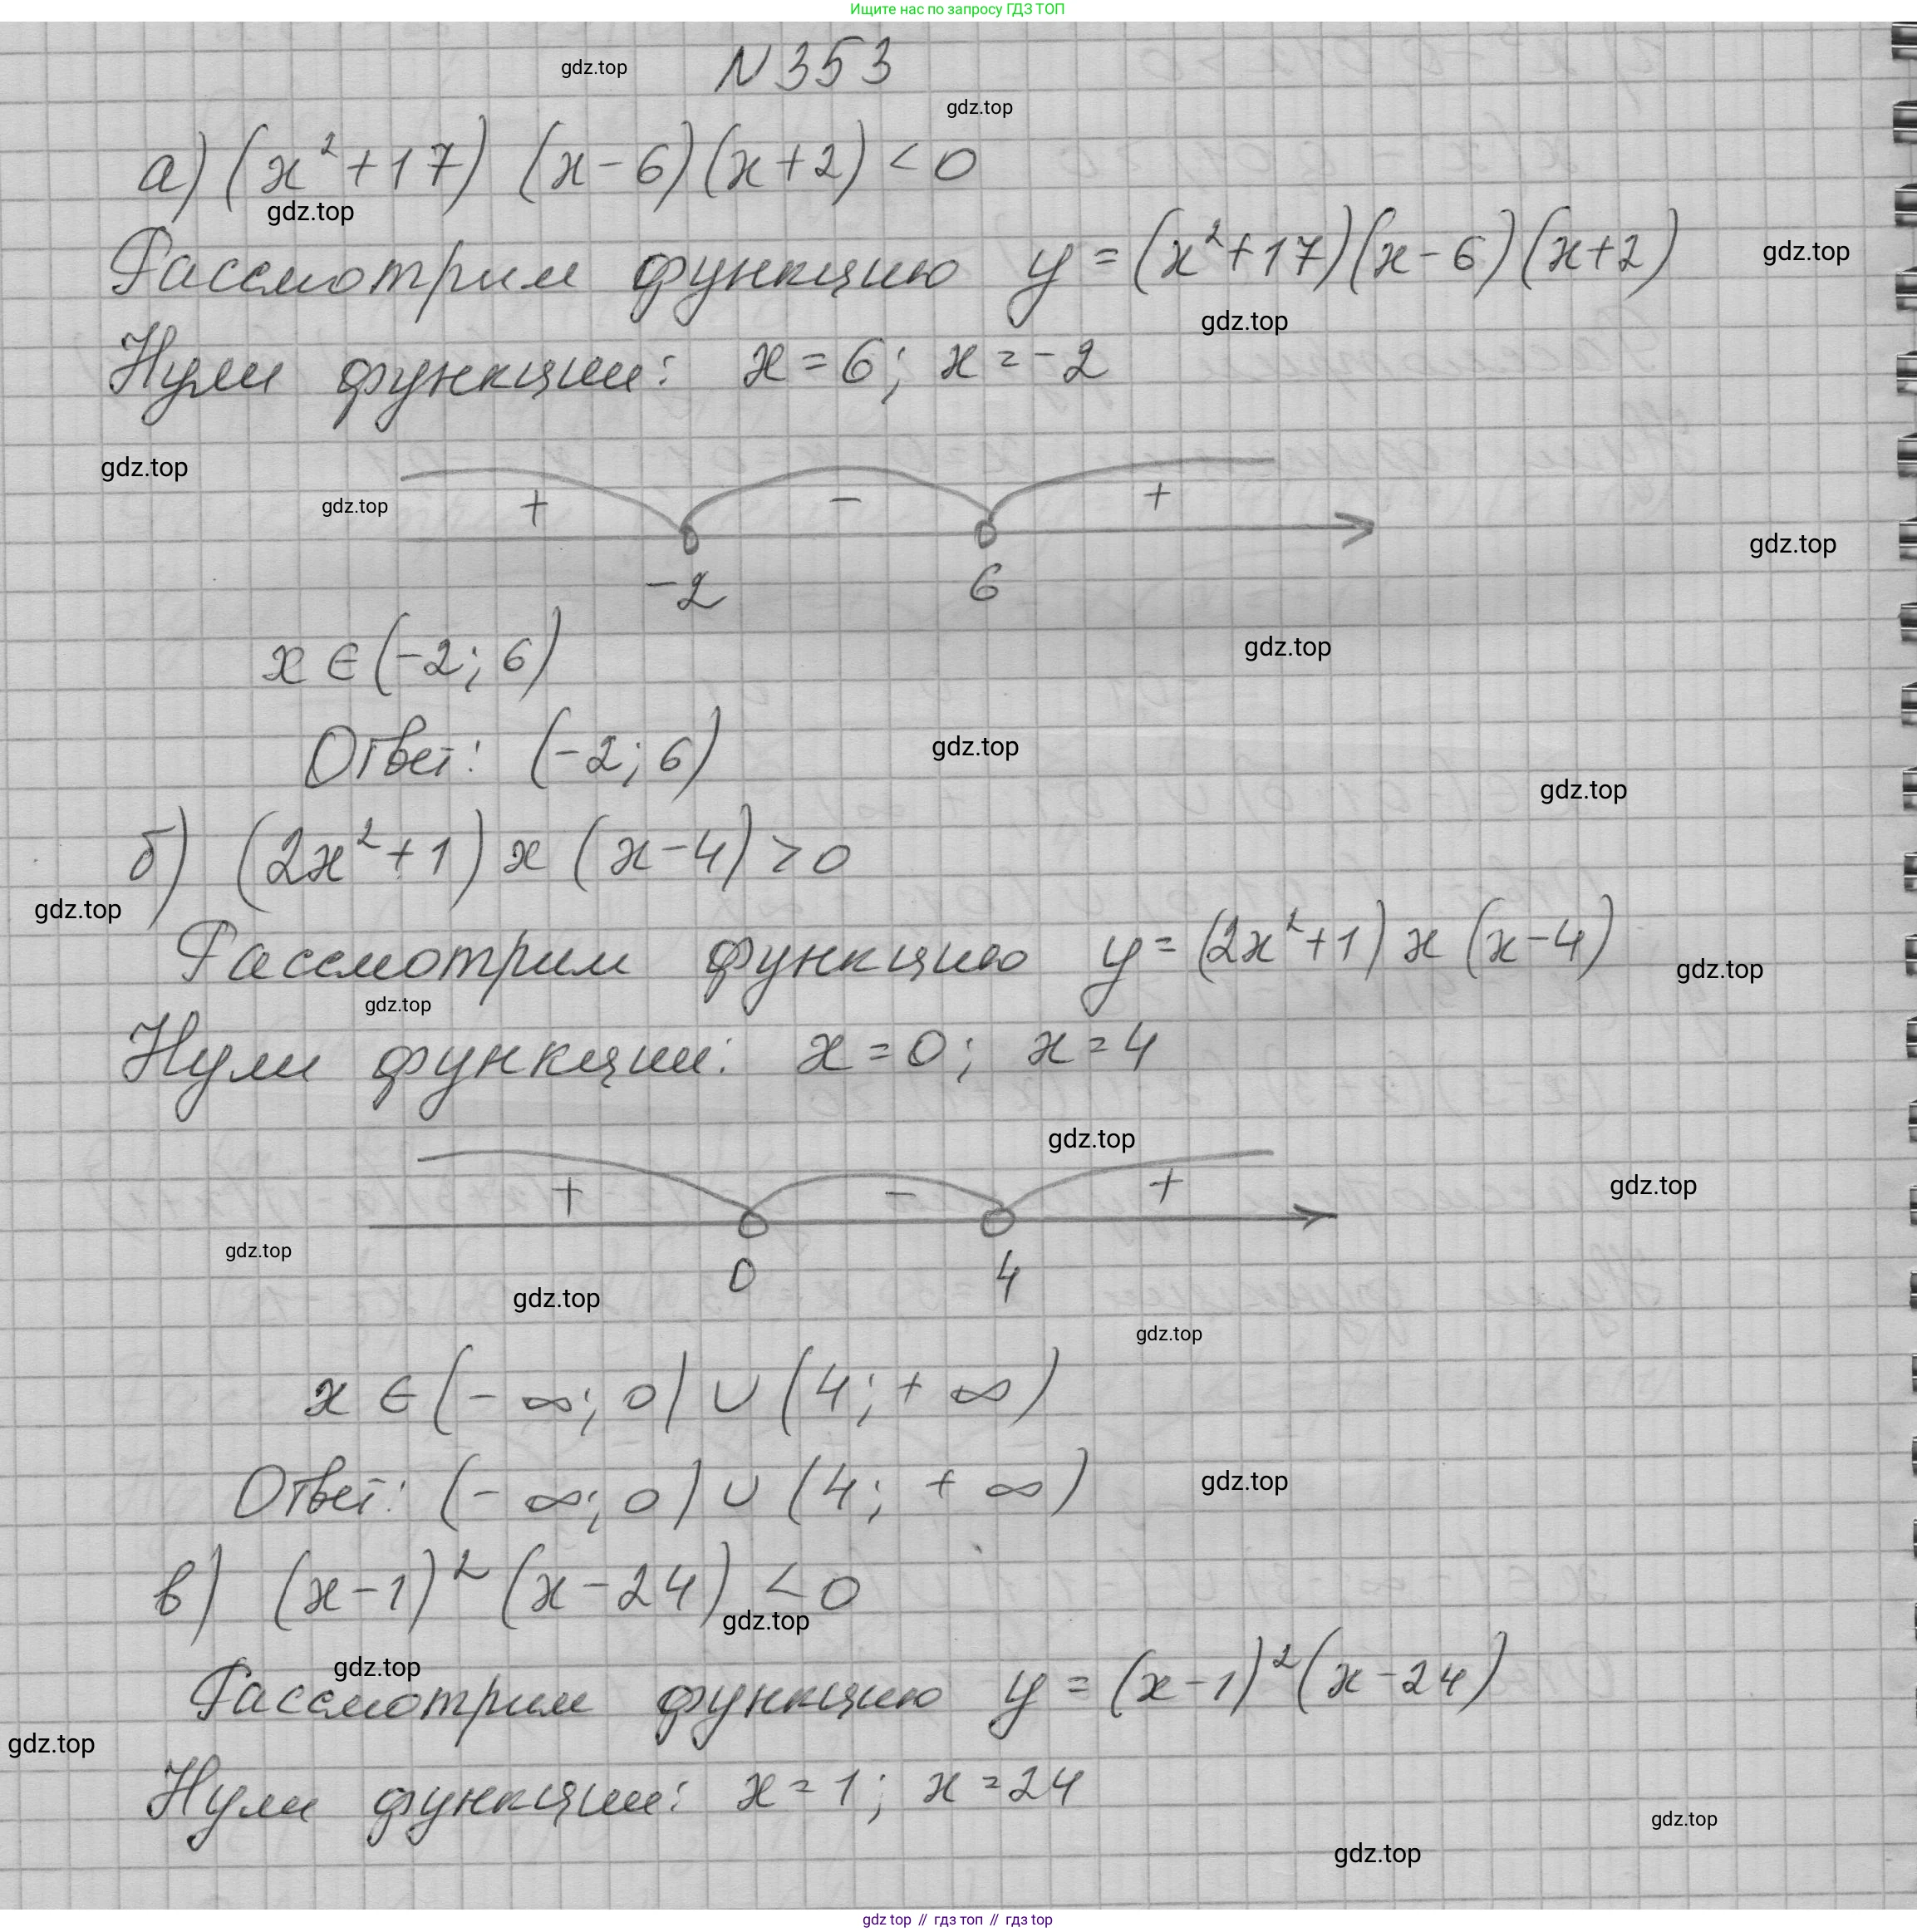 Ищите нас по запросу ГДЗ ТОП
gdz.top N 353
gdz.top
а) (x²+17) (x-6)(x+2) < 0
gdz.top
Рассмотрим функцию y = (x²+17)(x-6)(x+2) gdz.top
gdz.top
Нули функции: x = 6; x = -2
gdz.top
gdz.top + - +
gdz.top
-2 6
x ∈ (-2; 6) gdz.top
Ответ: (-2; 6) gdz.top
gdz.top
б) (2x²+1) x (x-4) > 0
gdz.top
Рассмотрим функцию y = (2x²+1) x (x-4) gdz.top
gdz.top
Нули функции: x = 0; x = 4
gdz.top
+ - + gdz.top
gdz.top
0 4
gdz.top
gdz.top
x ∈ (-∞; 0) ∪ (4; +∞)
Ответ: (-∞; 0) ∪ (4; +∞) gdz.top
в) (x-1)² (x-24) < 0
gdz.top
gdz.top
Рассмотрим функцию y = (x-1)² (x-24)
gdz.top
Нули функции: x = 1; x = 24
gdz.top
gdz.top
gdz top // гдз топ // гдз top